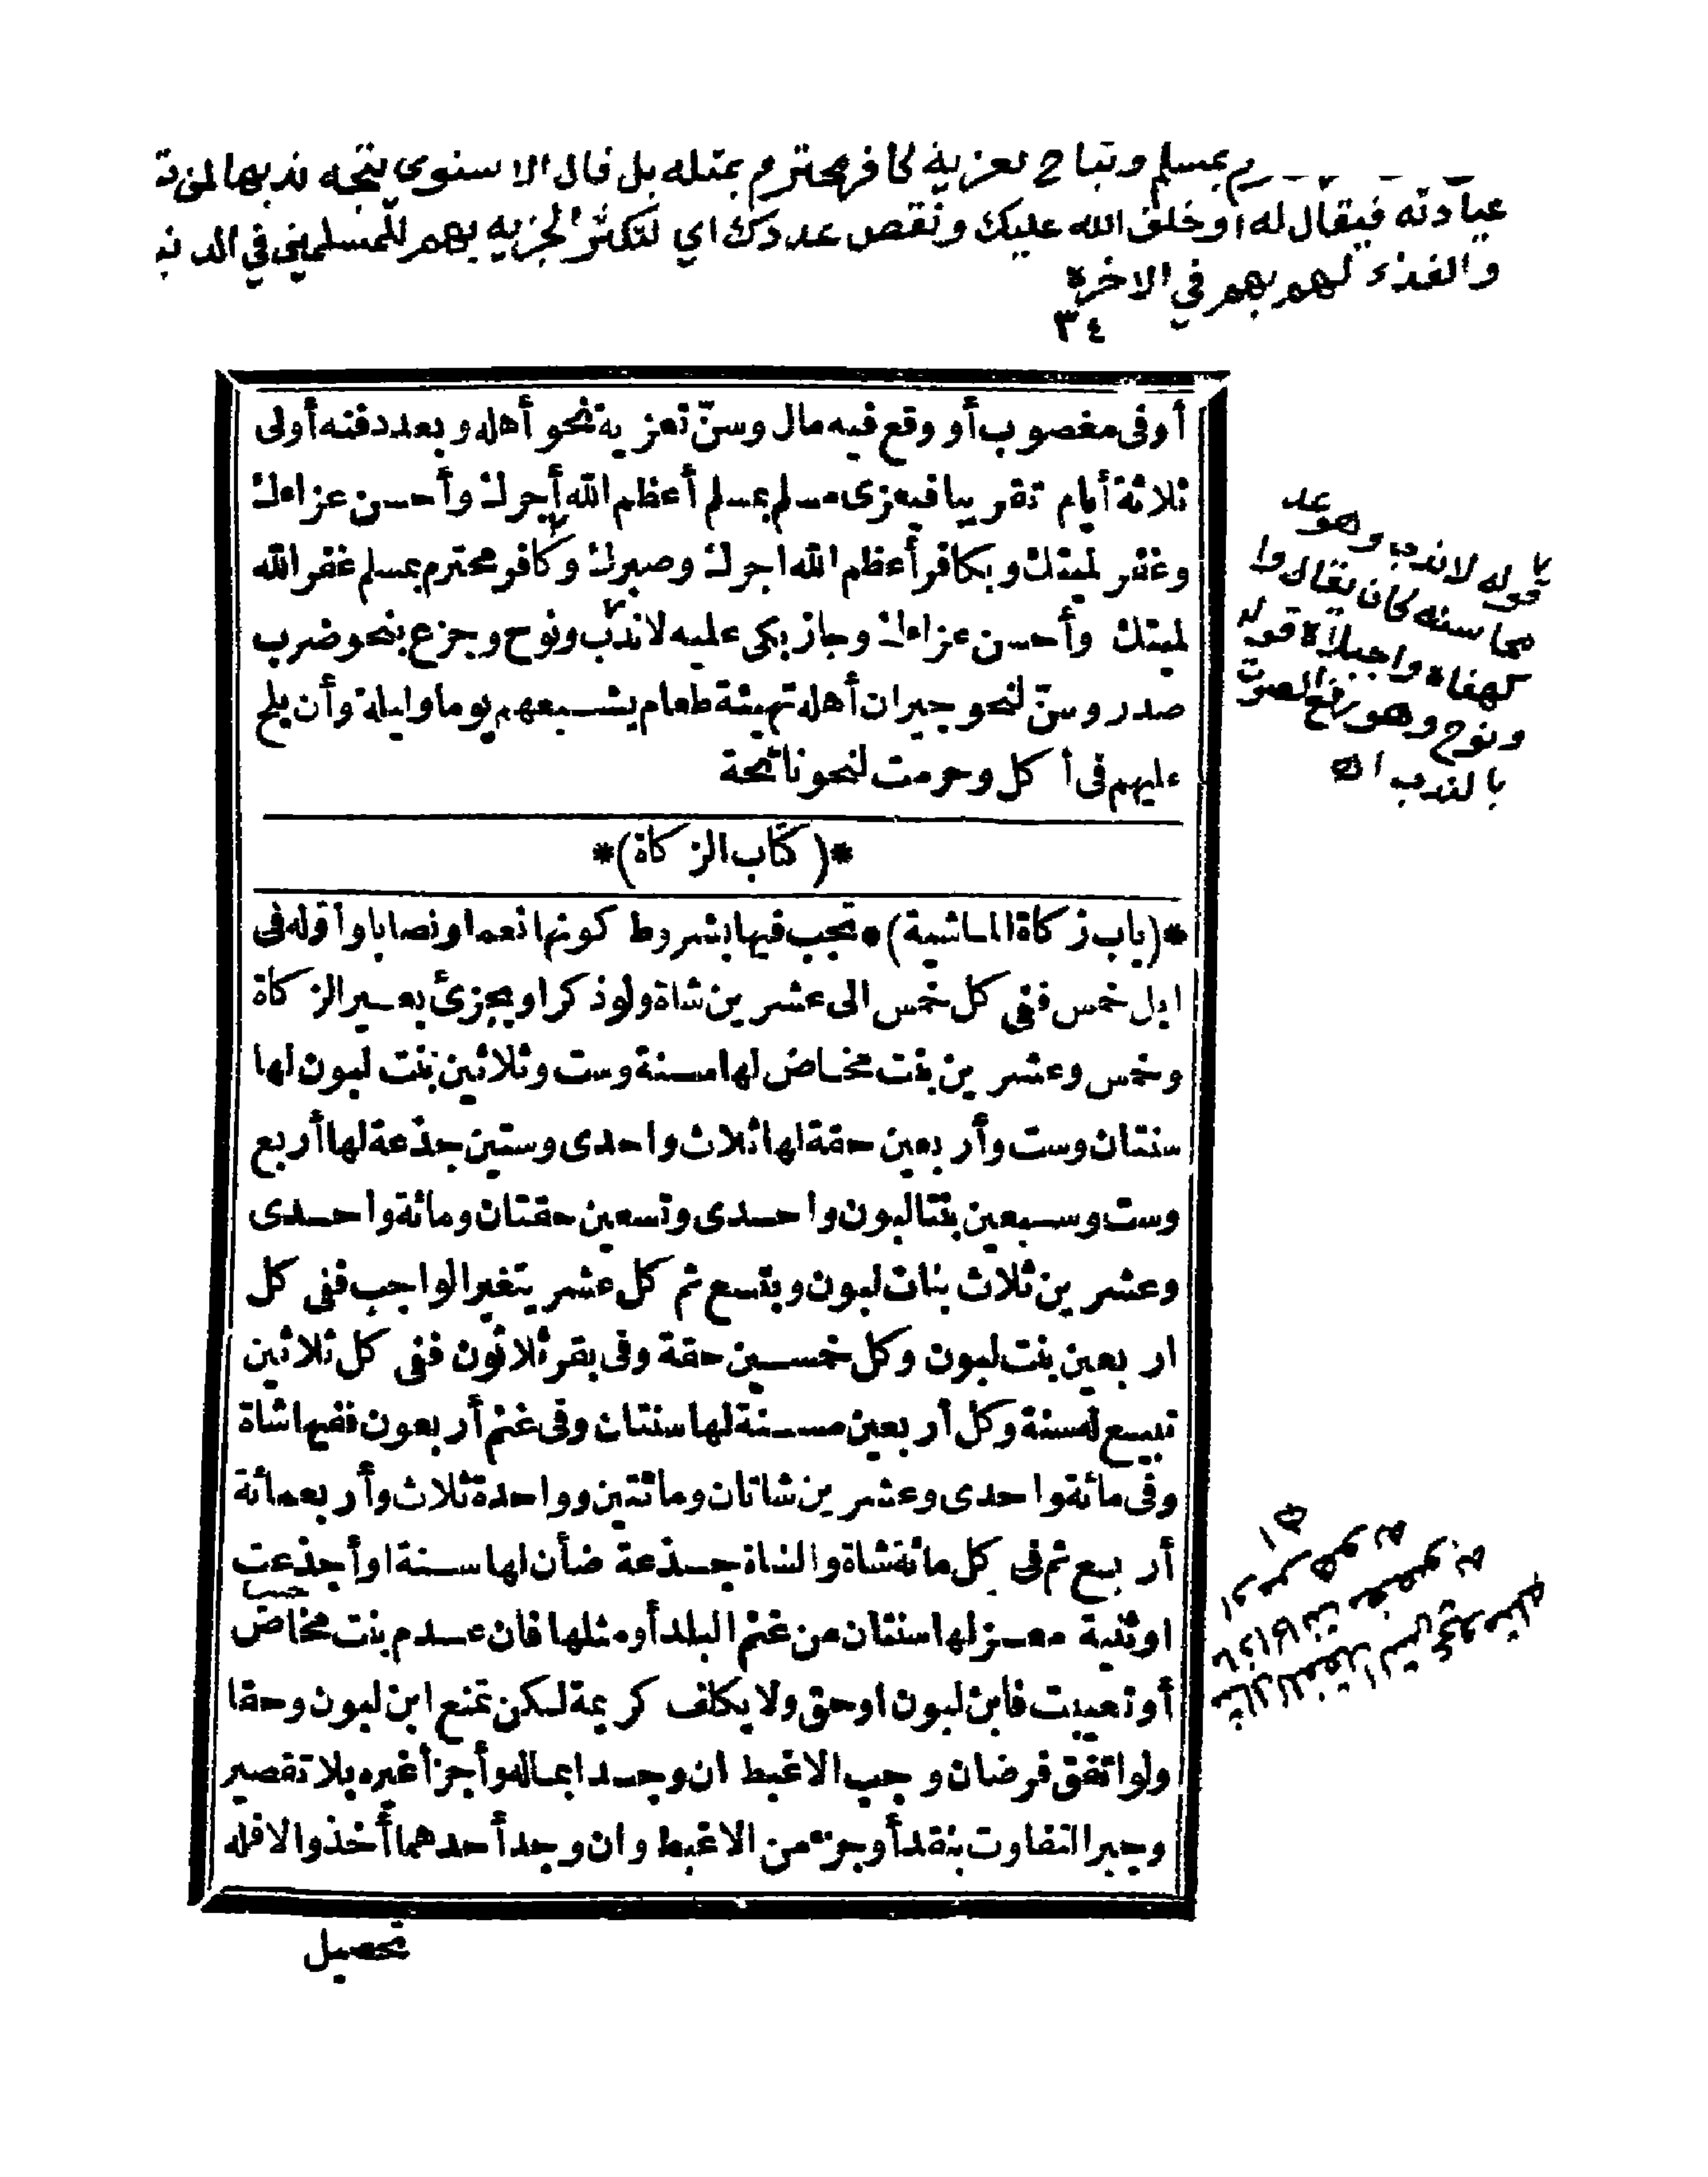 رم بمسلم وتباح تعزية كافر محترم بمثله بل قال الاسنوى يتجه ندبها لمن ت
عيادته فيقال له اوخلق الله عليك ونقص عددك اي لتكثر الجزيه بهم للمسلمين في الدنيا
والفذء لهم بهم في الاخرة
٣٤
أوفى مغصوب أو وقع فيه مال وسنّ تعزية نحو أهله وبعد دفنه أولى
ثلاثة أيام تقريبا فيعزى مسلم بمسلم أعظم الله أجرك وأحسن عزاءك
وغفر لميتك وبكافر أعظم الله اجرك وصبرك وكافر محترم بمسلم غفر الله
لميتك وأحسن عزاءك وجاز بكى عليه لا ندب ونوح وجزع بنحو ضرب
صدر وسنّ لنحو جيران أهله تهيئة طعام يشبعهم يوما وليلة وأن يلح
عليهم فى أكل وحرمت لنحو نائحة
قوله لا ندب وهو عد
محاسنه كان يقال وا
كهفاه واجبلاه قوله
ونوح وهو رفع الصوت
بالندب اه
*(كتاب الزكاة)*
*(باب زكاة الماشية)* تجب فيها بشروط كونها نعما ونصابا وأقوله فى
ابل خمس ففى كل خمس الى عشرين شاة ولو ذكرا ويجزئ بعير الزكاة
وخمس وعشرين بنت مخاض لها سنة وست وثلاثين بنت لبون لها
سنتان وست وأربعين حقة لها ثلاث واحدى وستين جذعة لها أربع
وست وسبعين بنتا لبون واحدى وتسعين حقتان ومائة واحدى
وعشرين ثلاث بنات لبون وبتسع ثم كل عشر يتغير الواجب ففى كل
اربعين بنت لبون وكل خمسين حقة وفى بقر ثلاثون ففى كل ثلاثين
تبيع له سنة وكل أربعين مسنة لها سنتان وفى غنم أربعون ففيها شاة
وفى مائة واحدى وعشرين شاتان ومائتين وواحدة ثلاث وأربعمائة
أربع ثم فى كل مائة شاة والشاة جذعة ضأن لها سنة او أجذعت
اوثنية معز لها سنتان من غنم البلد أو مثلها فان عدم بنت مخاض
أوتعيبت فابن لبون اوحق ولا يكلف كريمة لكن تمنع ابن لبون وحقا
ولو اتفق فرضان وجب الاغبط ان وجدا بماله وأجزأ غيره بلا تقصير
وجبر التفاوت بنقد أو جزء من الاغبط وان وجد أحدهما أخذ والا فله
تحصيل